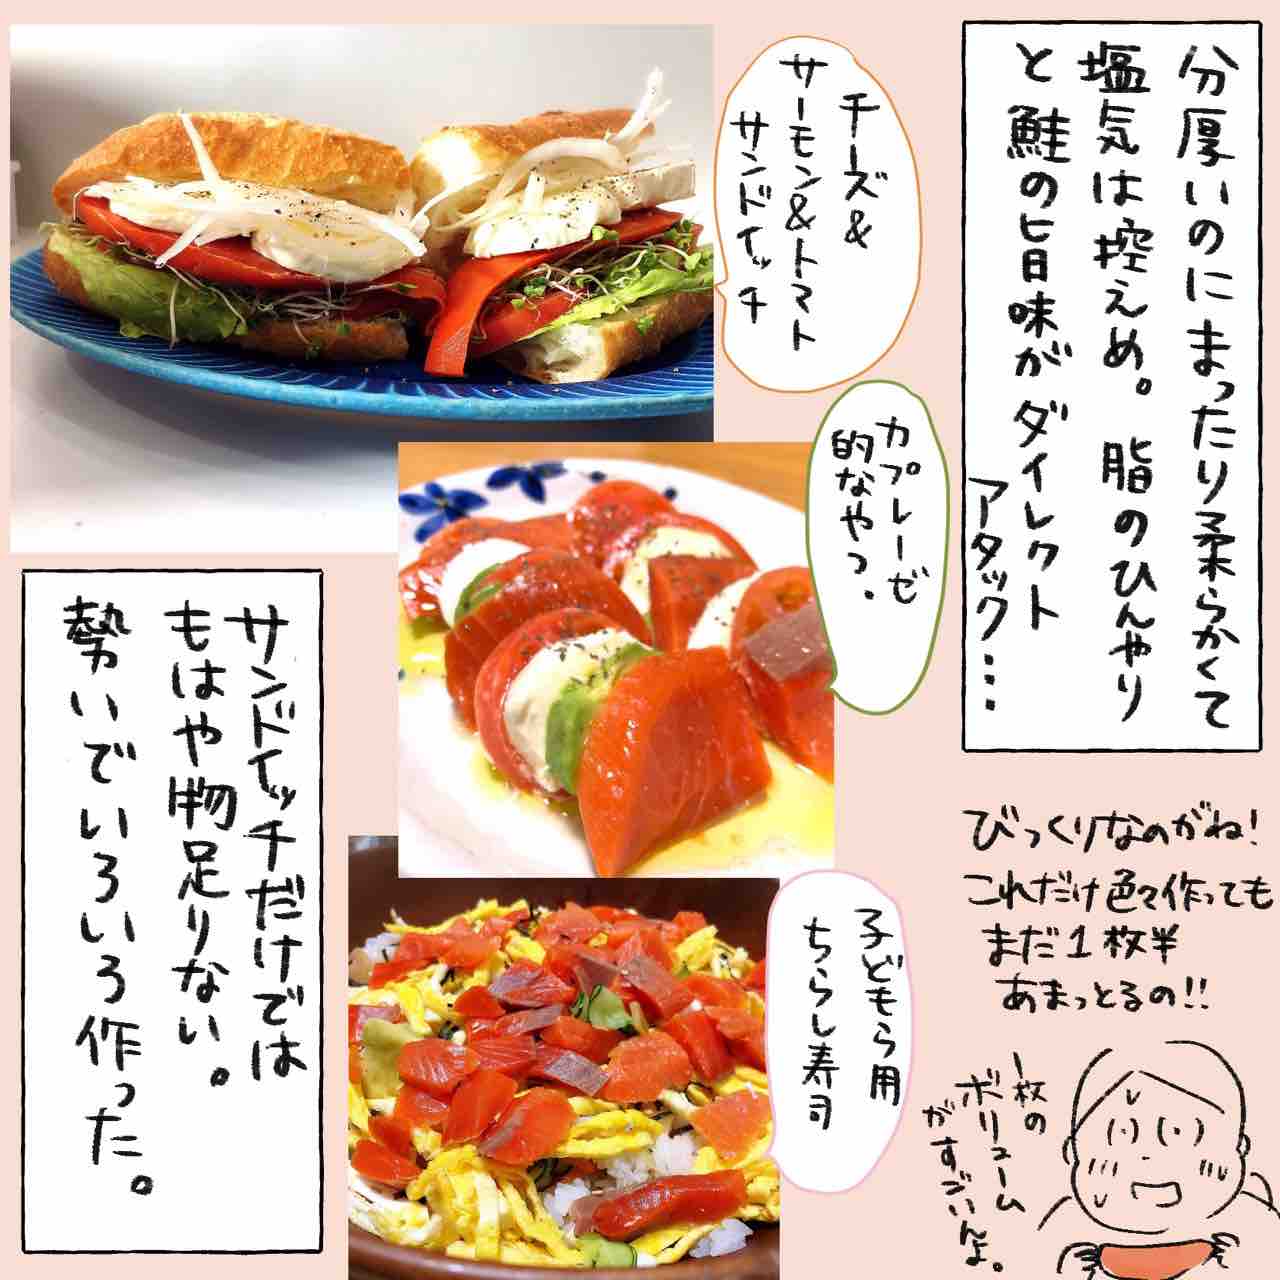 分厚いのにまったり柔らかくて
塩気は控えめ。脂のひんやり
と鮭の旨味がダイレクト
アタック…
チーズ&
サーモン&トマト
サンドイッチ
カプレーゼ
的なやつ.
サンドイッチだけでは
もはや物足りない。
勢いでいろいろ作った。
子どもら用
ちらし寿司
びっくりなのがね!
これだけ色々作っても
まだ1枚半
あまっとるの!!
1枚の
ボリューム
がすごいんよ。